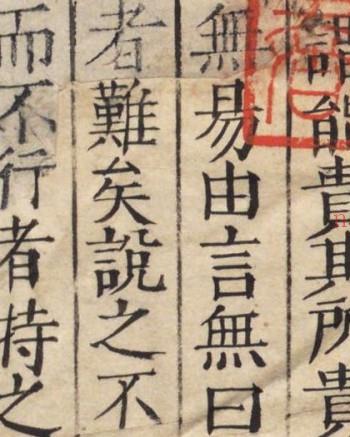 能貴其所貴
無易由言無曰
者難矣說之不
而不行者持之